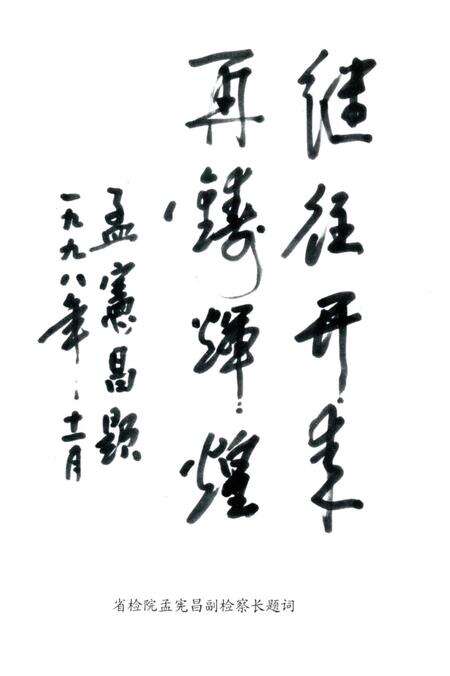 继往开来
再铸辉煌
孟宪昌题
一九九八年十二月
省检院孟宪昌副检察长题词